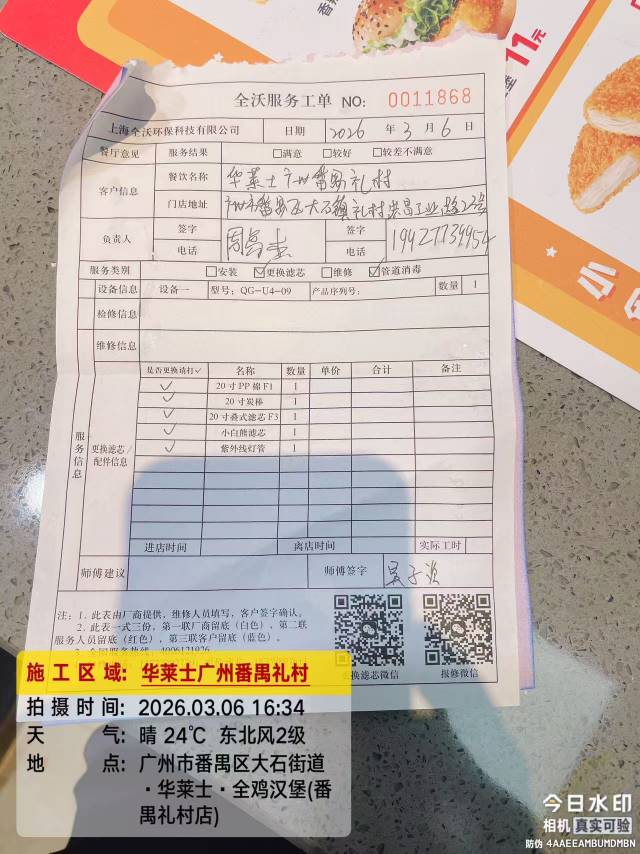 11元
全沃服务工单 NO: 0011868
上海全沃环保科技有限公司 日期 2026 年 3 月 6 日
餐厅意见 服务结果 □满意 □较好 □较差不满意
客户信息 餐饮名称 华莱士广州番禺礼村
门店地址 广州市番禺区大石镇礼村
负责人 签字 签字
电话 电话 19427739954
服务类别 □安装 ☑更换滤芯 □维修 ☑管道消毒
设备信息 设备一 型号：QG-U4-09 产品序列号： 数量 1
检修信息
维修信息
服务信息 更换滤芯/配件信息
是否更换请打✓ 名称 数量 单价 合计 备注
✓ 20寸PP棉F1 1
✓ 20寸炭棒 1
✓ 20寸叠式滤芯F3 1
✓ 小白熊滤芯 1
✓ 紫外线灯管 1
进店时间 离店时间 实际工时
师傅建议 师傅签字
注：1．此表由厂商提供，维修人员填写，客户签字确认。
2．此表一式三份，第一联厂商留底（白色），第二联
服务人员留底（红色），第三联客户留底（蓝色）。
更换滤芯微信 报修微信
施工区域: 华莱士广州番禺礼村
拍摄时间: 2026.03.06 16:34
天气: 晴 24℃ 东北风2级
地点: 广州市番禺区大石街道
·华莱士·全鸡汉堡(番
禺礼村店)
今日水印
相机 真实可验
防伪 4AAEEAMBUMDMBN